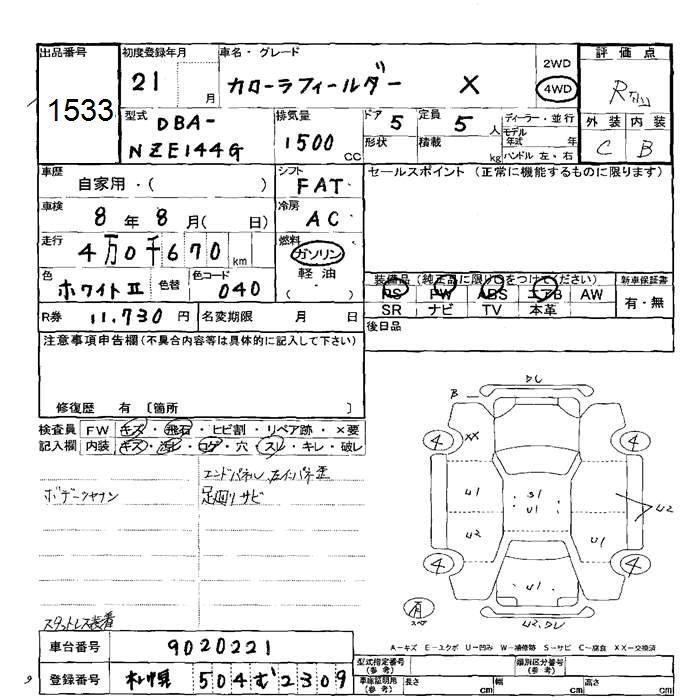 出品番号 1533
初度登録年月 21 月
車名・グレード カローラフィールダー X
2WD 4WD
評価点 R
外装 内装
C B
型式 DBA-NZE144G
排気量 1500 CC
ドア 5 形状
定員 5 人 積載 kg
ディーラー・並行
モデル年式 年式
ハンドル 左・右
車歴 自家用・( )
シフト FAT
セールスポイント (正常に機能するものに限ります)
車検 8年 8月( 日)
冷房 AC
走行 4万0千670 km
燃料 ガソリン 軽油 ( )
色 ホワイトII 色替 色コード 040
装備品 (純正品に限り○をつけてください) 新車保証書
PS PW ABS エアB AW 有・無
SR ナビ TV 本革
R券 11,730 円 名変期限 月 日
後日品
注意事項申告欄 (不具合内容等は具体的に記入して下さい)
修復歴 有 〔箇所 〕
検査員 FW キズ・飛石・ヒビ割・リペア跡・×要
記入欄 内装 キズ・汚レ・コゲ・穴・スレ・キレ・破レ
エンドパネル、左インパネ歪
ボデークサワン 足廻リサビ
スタットレス装着
B DL
4 XX 4
U1 S1 U1 U2
U2 U1
4 U1 4
有 スペア U2.DL
A−キズ E−エクボ U−凹み W−補修跡 S−サビ C−腐食 XX−交換済
車台番号 9020221
型式指定番号 (参考) 類別区分番号 (参考)
登録番号 札幌 504 む 2309
車庫証明用 (参考) 長さ cm 幅 cm 高さ cm